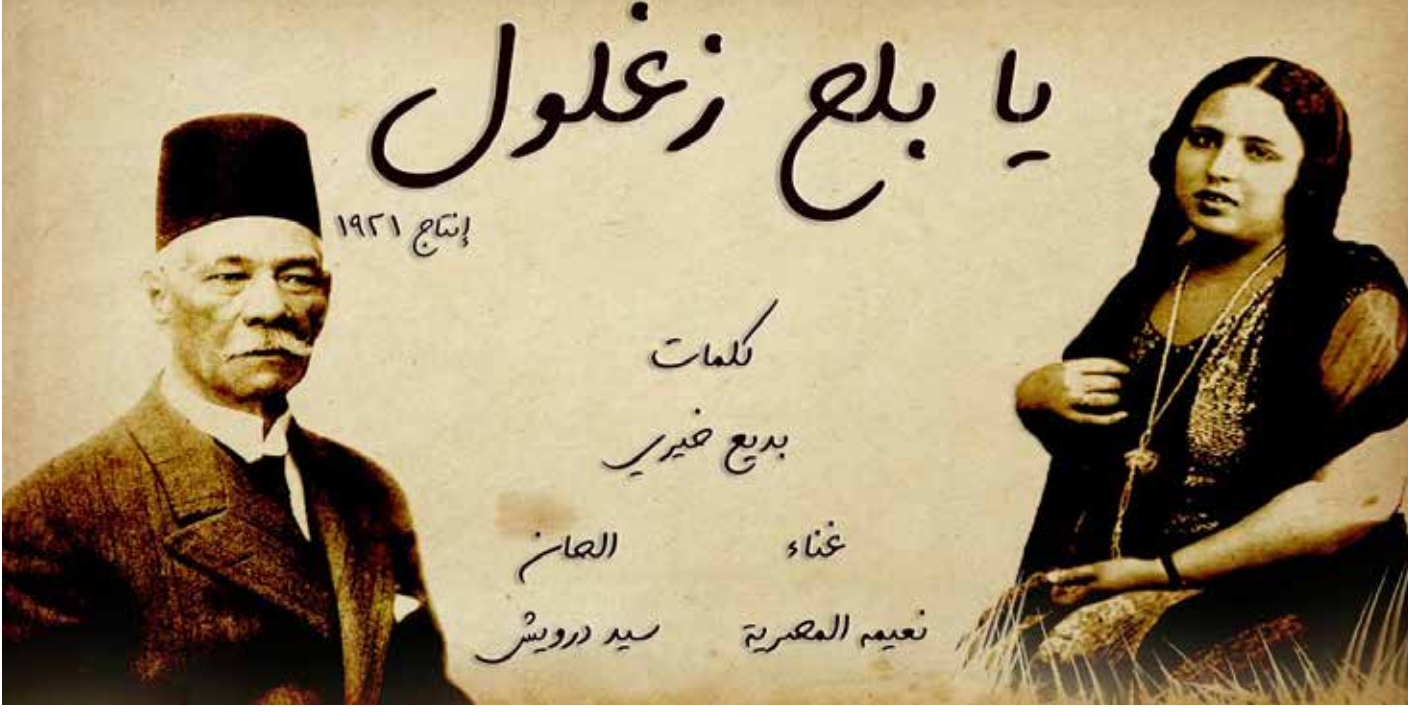 يا بلح زغلول
إنتاج ١٩٢١
كلمات
بديع خيري
غناء
نعيمه المصرية
الحان
سيد درويش